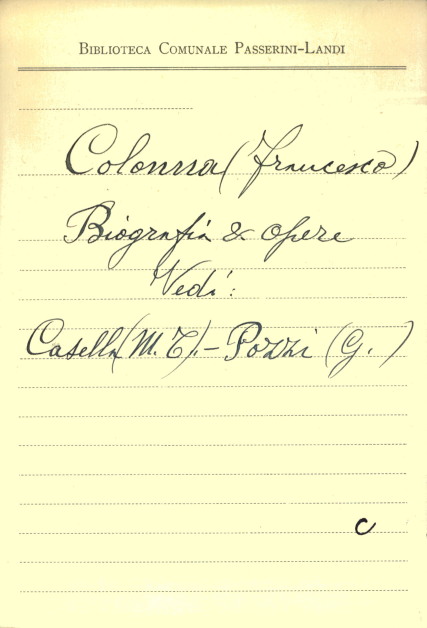 Biblioteca Comunale Passerini-Landi
Colonna (Francesco)
Biografia & opere
Vedi:
Casella (M. T.). - Pozzi (G.)
C